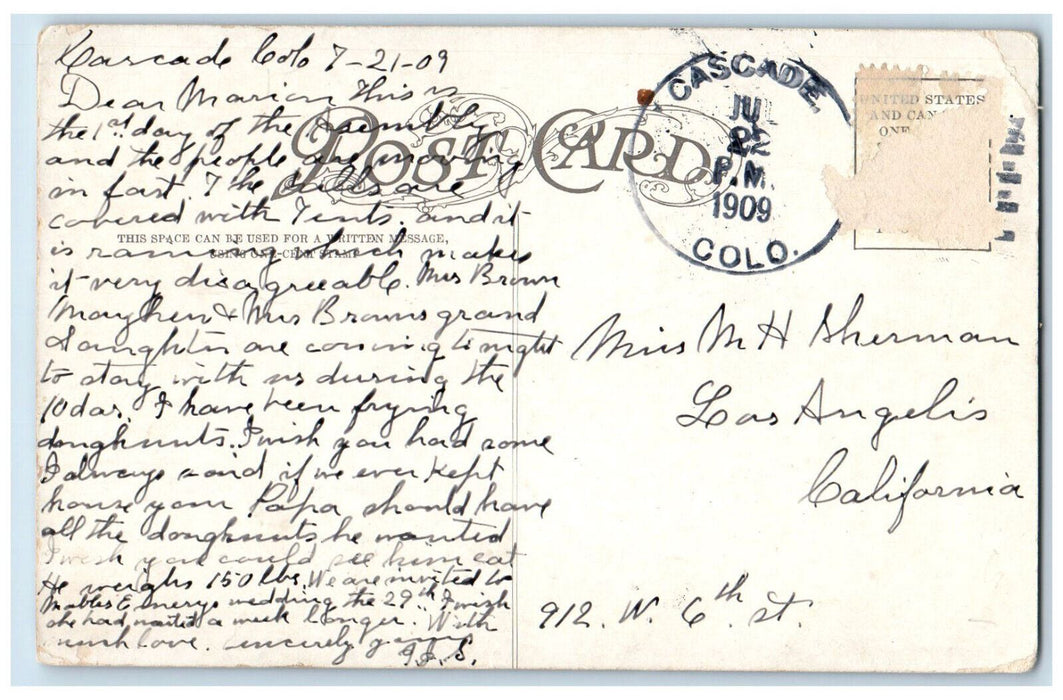 Cascade Colo 7-21-09
Dear Marion This is
the 1st day of the Asembly
and the people are moving
in fast The hills are
covered with Tents. and it
is raining which makes
it very disagreeable. Mrs Brown
& Mrs Browns grand
daughter are coming tonight
to stay with us during the
10 das. I have been frying
doughnuts. I wish you had some
I always said if we ever kept
house your Papa should have
all the doughnuts he wanted
I wish you could see him eat
He weighs 150 lbs. We are invited to
Mables Emerys wedding the 29th I wish
she had waited a week longer. With
much love. sincerely yours
S.
POST CARD
THIS SPACE CAN BE USED FOR A WRITTEN MESSAGE,
USING ONE-CENT STAMP
CASCADE,
JUL
22
P.M.
1909
COLO.
UNITED STATES
AND CAN
ONE
Miss M H Sherman
Los Angelis
California
912. W. 6th St.